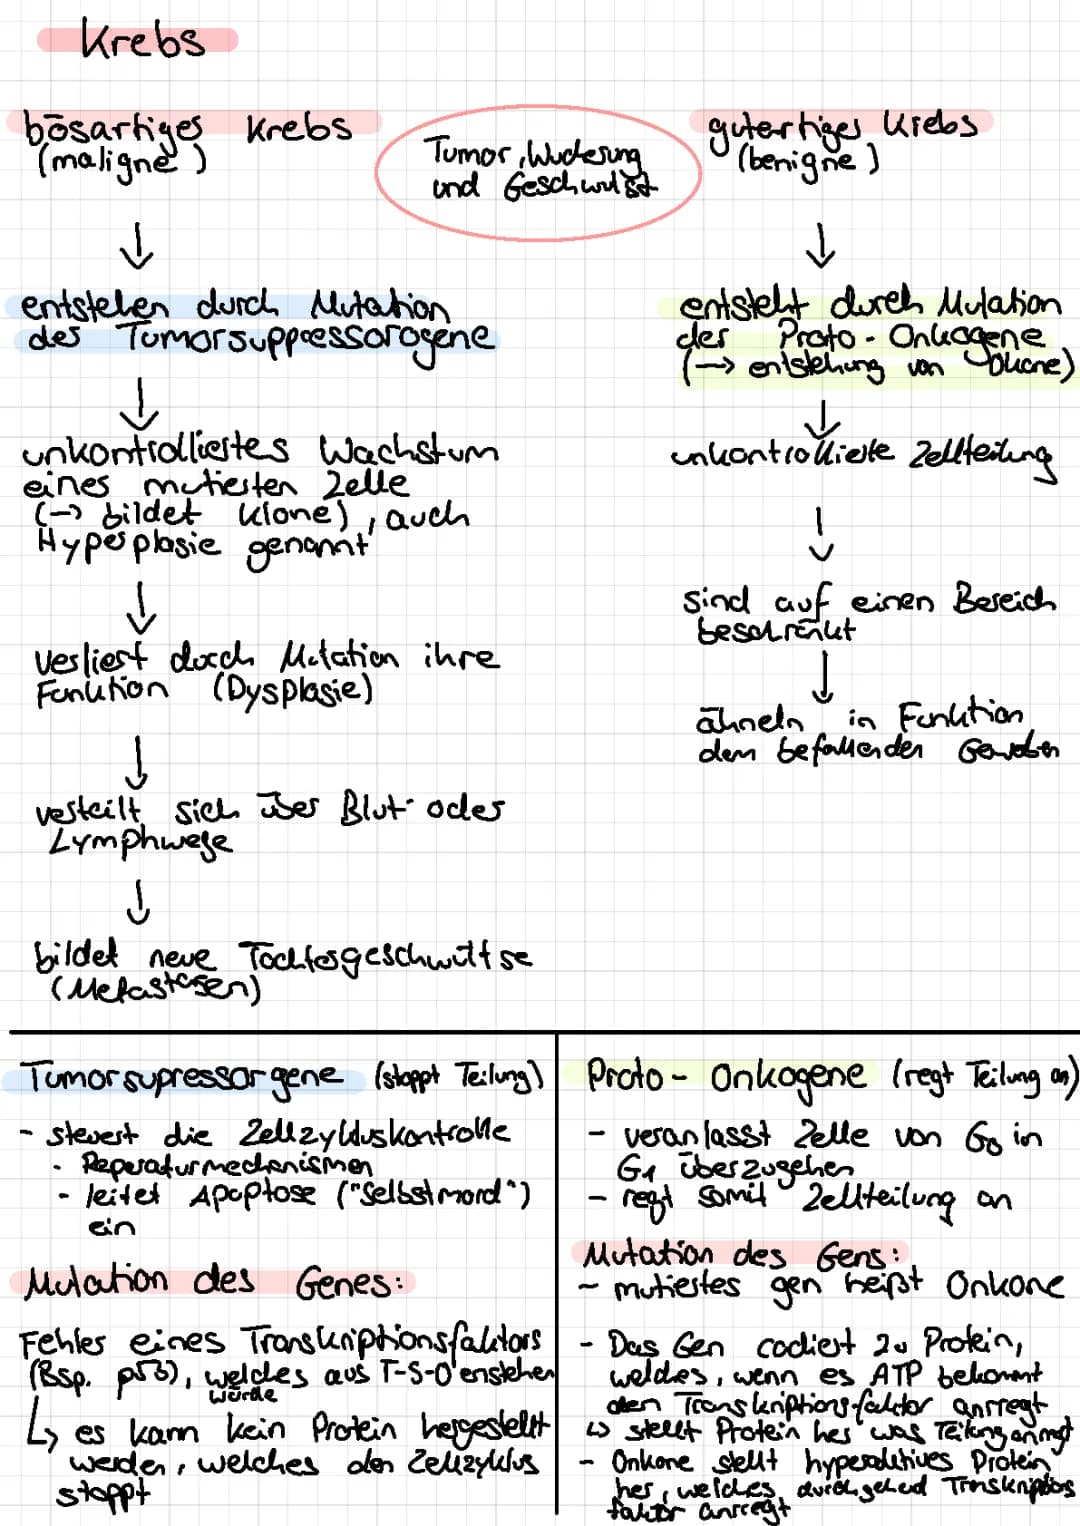 Krebs
bösartiges Krebs
(maligne)
Tumor, Wucherung
und Geschwulst
gutertiges Krebs
(benigne)
↓
↓
entstehen durch Mutation
des Tumorsuppressorogene
entsteht durch Mutation
der Proto-Onkogene
(→ entstehung von Okone)
↓
↓
unkontrolliertes Wachstum
eines mutierten Zelle
(→ bildet Klone), auch
Hyperplasie genannt
unkontrollierte Zellteilung
↓
↓
sind auf einen Bereich
beschränkt
verliert durch Mutation ihre
Funktion (Dysplasie)
↓
ähneln in Funktion
dem befallenden Geweben
↓
verteilt sich über Blut- oder
Lymphwege
↓
bildet neue Tochtergeschwültse
(Metastasen)
Tumorsupressorgene (stoppt Teilung)
- steuert die Zellzykluskontrolle
· Reperaturmechanismen
- leitet Apoptose ("Selbstmord")
ein
Mutation des Genes:
Fehler eines Transkriptionsfaktors
(Bsp. p53), welches aus T-S-O enstehen
würde
↳ es kann kein Protein hergestellt
werden, welches den Zellzyklus
stoppt
Proto-Onkogene (regt Teilung an)
- veranlasst Zelle von G0 in
G1 überzugehen
- regt somit Zellteilung an
Mutation des Gens:
- mutiertes gen heißt Onkone
- Das Gen codiert zu Protein,
welches, wenn es ATP bekommt
den Transkriptionsfaktor anrregt
↳ stellt Protein her was Teilung anregt
- Onkone stellt hyperaktives Protein
her, welches durchgehend Transkriptions
faktor anrregt